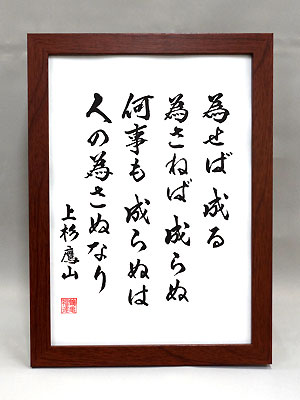 為せば成る
為さねば成らぬ
何事も成らぬは
人の為さぬなり
上杉鷹山